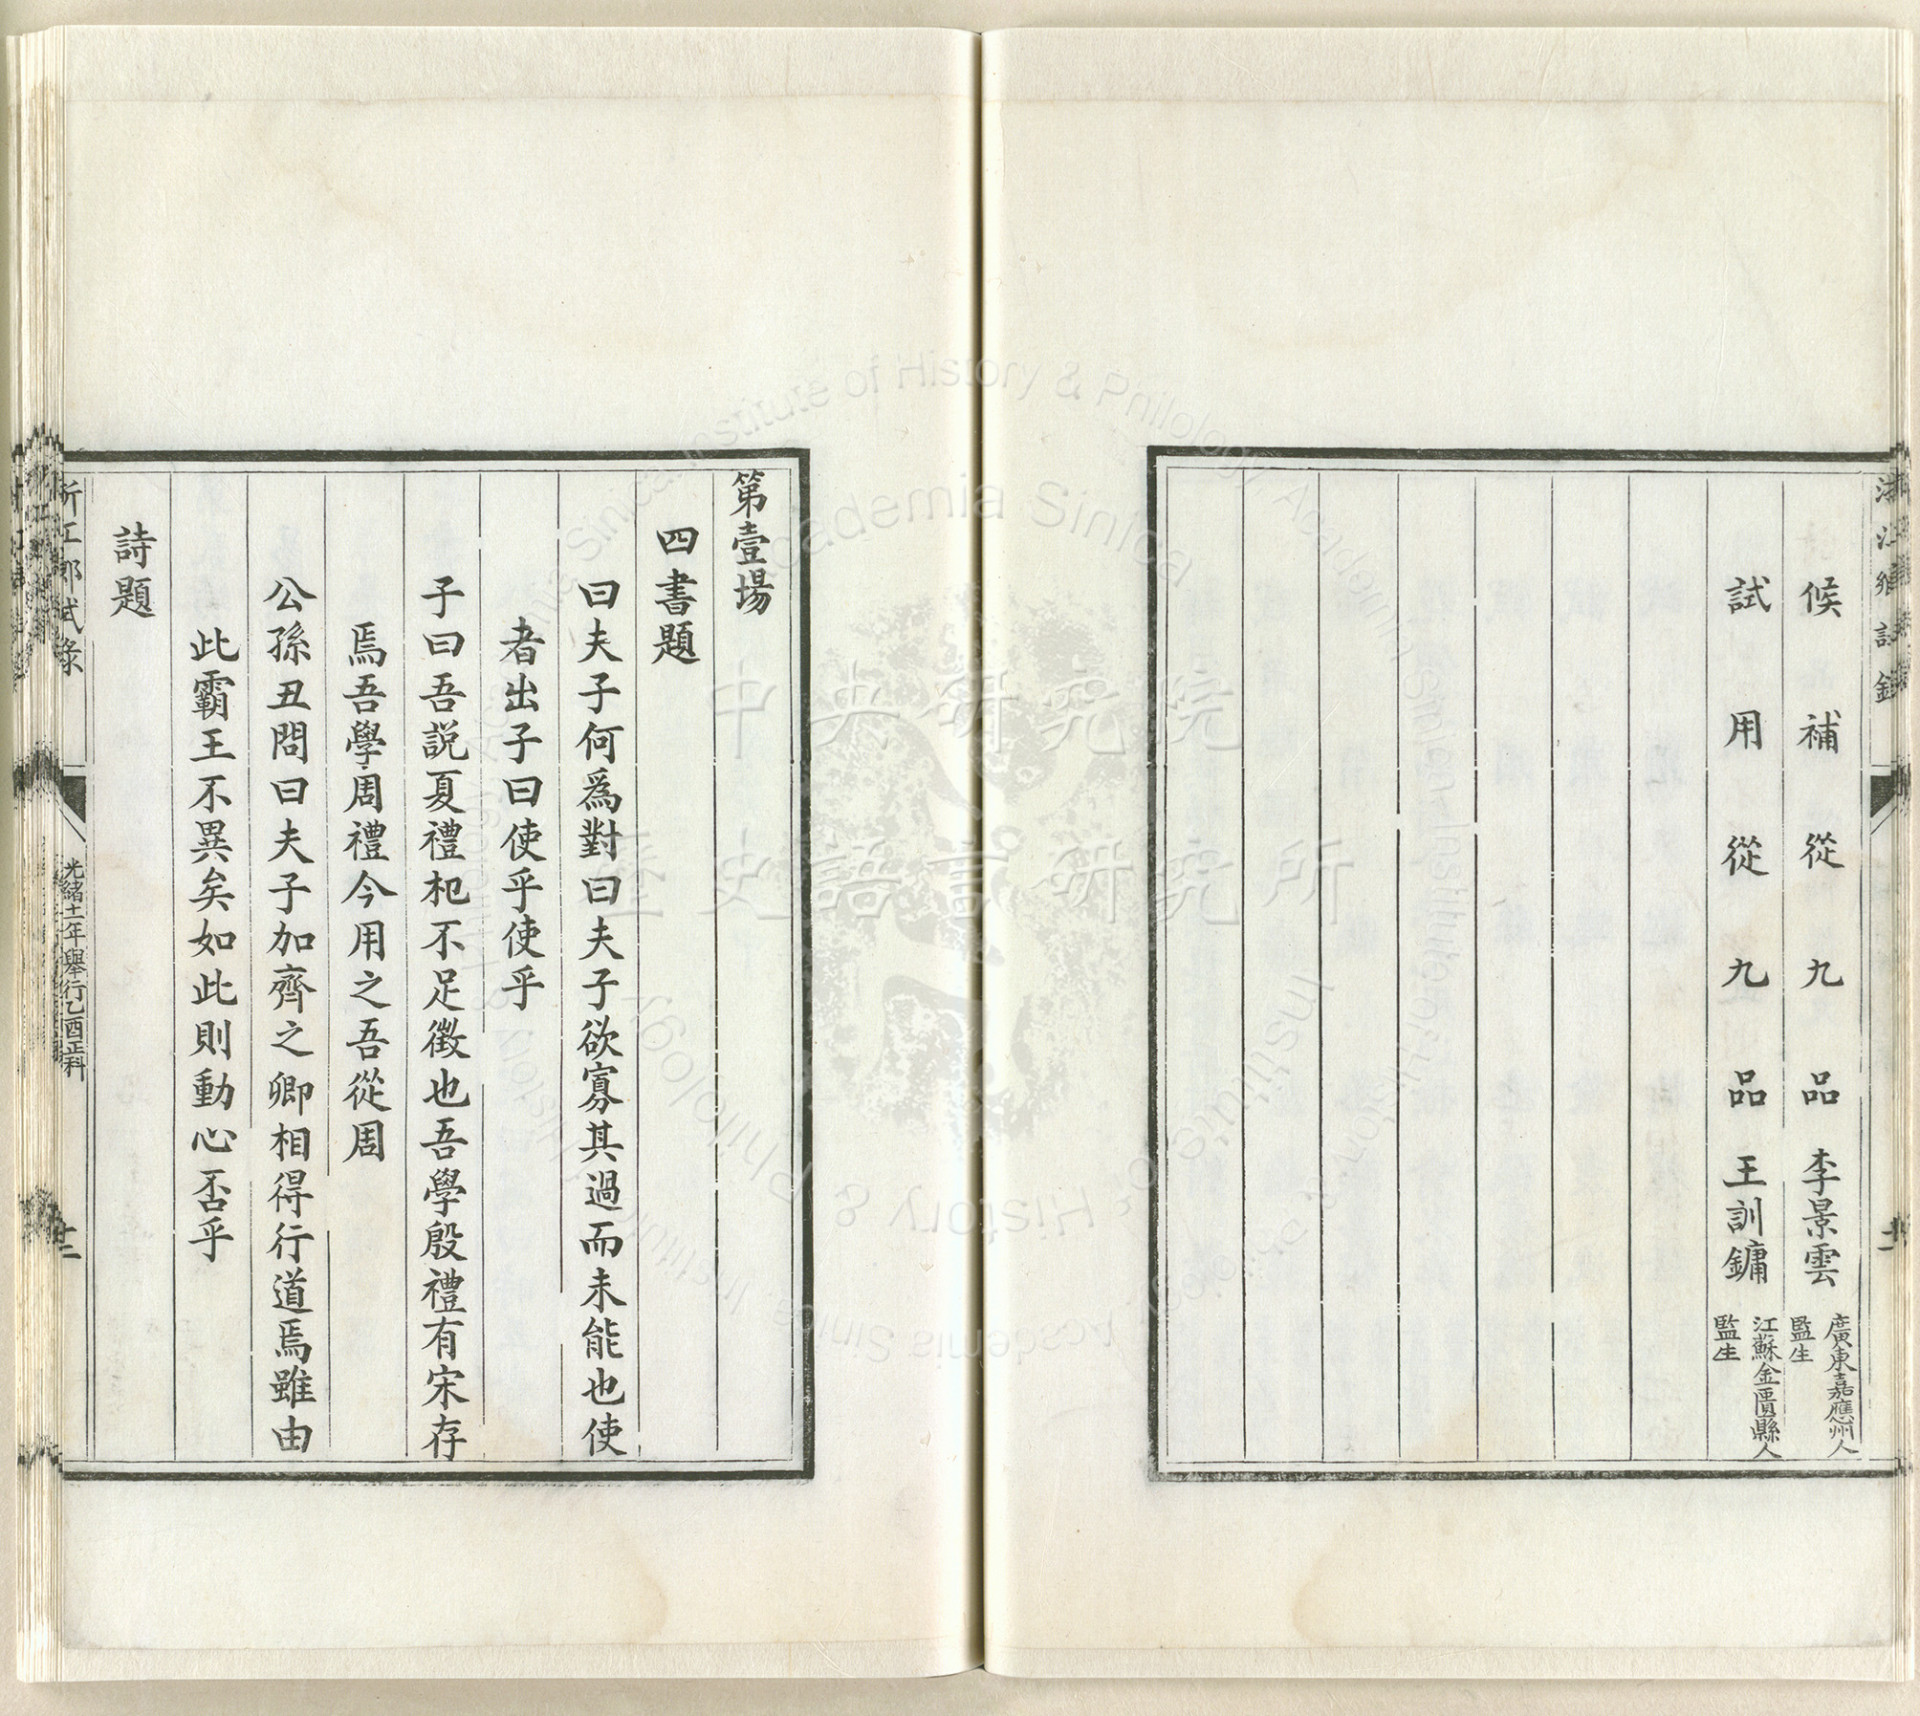 浙江鄉試錄
候補從九品李景雲廣東嘉應州人監生
試用從九品王訓鏞江蘇金匱縣人監生
第壹場
四書題
曰夫子何爲對曰夫子欲寡其過而未能也使
者出子曰使乎使乎
子曰吾説夏禮杞不足徵也吾學殷禮有宋存
焉吾學周禮今用之吾從周
公孫丑問曰夫子加齊之卿相得行道焉雖由
此霸王不異矣如此則動心否乎
詩題
浙江鄉試錄
光緒十一年舉行乙酉正科
中央研究院
歷史語言研究所
Institute of History & Philology, Academia Sinica
Academia Sinica